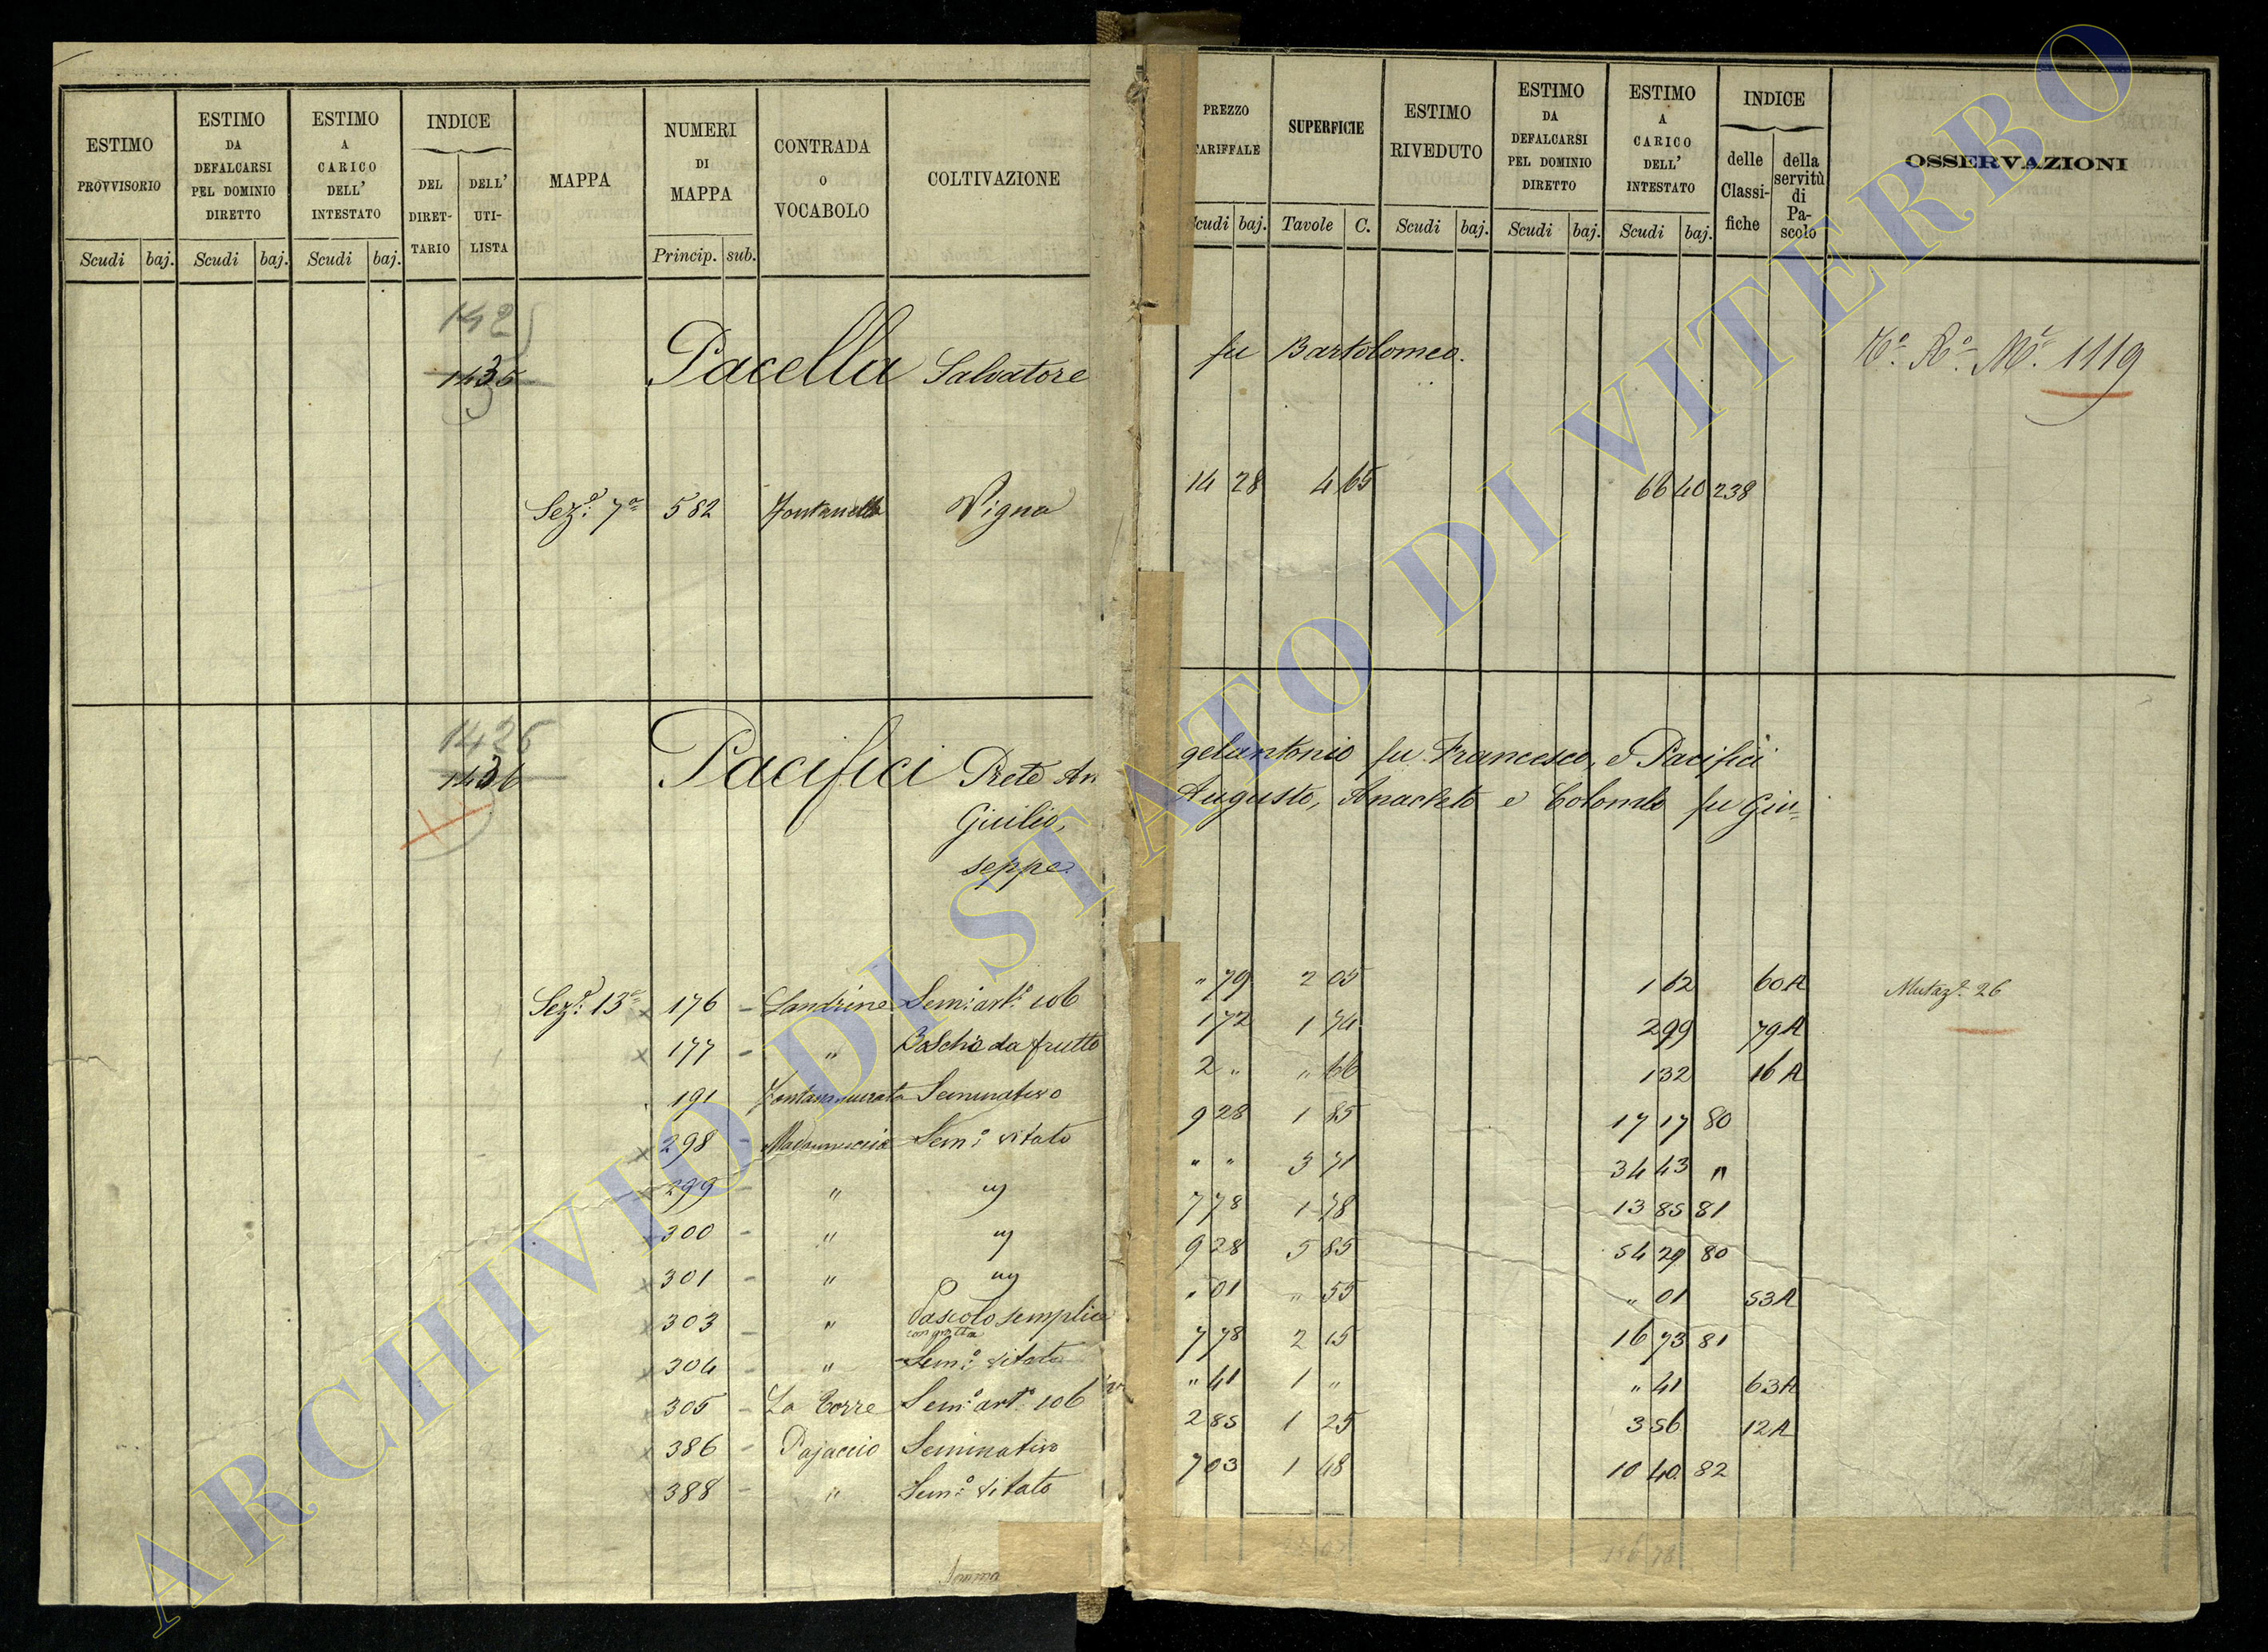 ESTIMO PROVVISORIO | ESTIMO DA DEFALCARSI PEL DOMINIO DIRETTO | ESTIMO A CARICO DELL' INTESTATO | INDICE DEL DIRETTARIO | DELL' UTILISTA | MAPPA | NUMERI DI MAPPA | CONTRADA O VOCABOLO | COLTIVAZIONE | PREZZO TARIFFALE | SUPERFICIE | ESTIMO RIVEDUTO | ESTIMO DA DEFALCARSI PEL DOMINIO DIRETTO | ESTIMO A CARICO DELL' INTESTATO | INDICE delle Classifiche | della servitù di Pascolo | OSSERVAZIONI
Scudi baj. Scudi baj. Scudi baj. Princip. sub. Scudi baj. Tavole C. Scudi baj. Scudi baj. Scudi baj.
142
1435 Pacella Salvatore fu Bartolomeo. 1119
Sez.e 7a 582 Fontanella Vigna 14 28 4 65 66 40 238
1426
1436 Pacifici Prete Angelantonio fu Francesco, e Pacifici
Giulio, Augusto, Anacleto e Colombo fu Giu=
seppe
Sez.e 13a x 176 - Landrine Sem: art.o 106 " 79 2 05 1 62 60A Mutaz.e 26
x 177 - " Boschi da frutto 1 72 1 74 2 99 79A
191 Fontana murata Seminativo 2 " " 66 1 32 16A
x 298 - Madonnuccia Sem.o vitato 9 28 1 85 17 17 80
x 299 - " " " " 3 71 34 43 "
x 300 - " " 7 78 1 78 13 85 81
x 301 - " " 9 28 5 85 54 29 80
x 303 - " Pascolo semplice con grotta " 01 " 55 " 01 53A
x 304 - " Sem.o vitato 7 78 2 15 16 73 81
x 305 - La Torre Sem: art.o 106 " 41 1 " " 41 63A
x 386 - Pajaccio Seminativo 2 85 1 25 3 56 12A
x 388 - " Sem.o vitato 7 03 1 48 10 40 82
Somma
ARCHIVIO DI STATO DI VITERBO